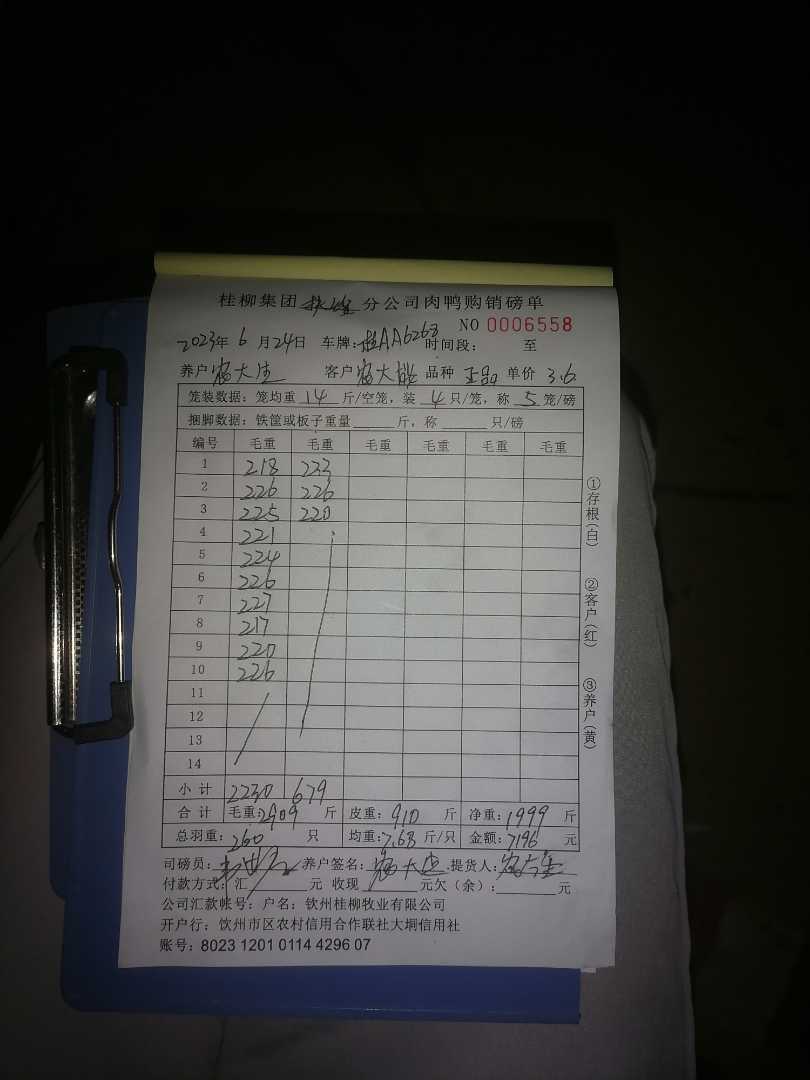 桂柳集团 分公司肉鸭购销磅单
NO 0006558
2023年 6 月 24日 车牌: 桂AA6268 时间段: 至
养户 大生 客户 大 品种 正品 单价 3.6
笼装数据: 笼均重 14 斤/空笼, 装 4 只/笼, 称 5 笼/磅
捆脚数据: 铁筐或板子重量 斤, 称 只/磅
编号 毛重 毛重 毛重 毛重 毛重 毛重
1 218 233
2 226 226
3 225 220
4 221
5 224
6 226
7 227
8 217
9 220
10 226
11
12
13
14
小计 2230 679
合计 毛重: 2909 斤 皮重: 910 斤 净重: 1999 斤
总羽重: 260 只 均重: 7.68 斤/只 金额: 7196 元
司磅员: 养户签名: 大生 提货人:
付款方式: 汇 元 收现 元欠(余): 元
公司汇款帐号: 户名: 钦州桂柳牧业有限公司
开户行: 钦州市区农村信用合作联社大垌信用社
账号: 8023 1201 0114 4296 07
①存根(白)
②客户(红)
③养户(黄)